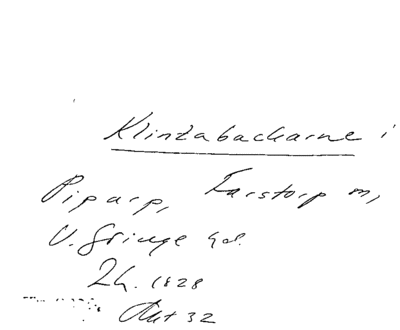 Klintabackarne i
Piparp, Farstorp sn,
V. Göinge hd.
Lh. 1828
Akt 32